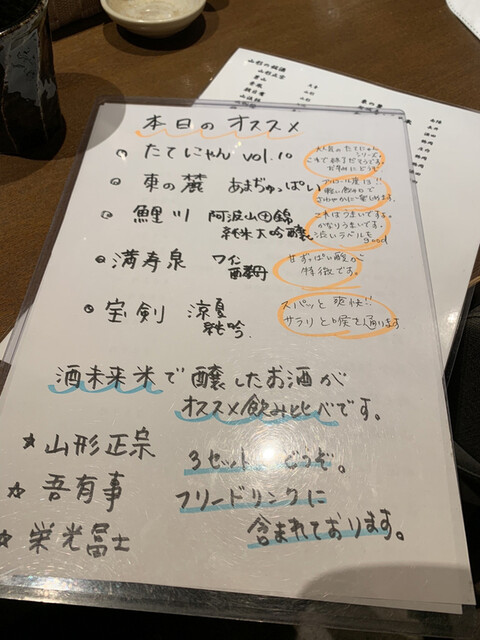 本日のオススメ
たてにゃん vol.10
大人気のたてにゃん
シリーズ。
これで終了だそうです。
お早めにどうぞ
東の麓 あまぢゅっぱい
アルコール度13!!
軽い飲口で
さわやかに楽しめます。
鯉川 阿波山田錦
純米大吟醸。
これはうまいですよ。
かなりうまいです。
渋いラベルも
good
満寿泉 ワイン
酵母
甘ずっぱい酸が
特徴です。
宝剣 涼夏
純吟.
スパッと爽快!!
サラリと喉を通ります
酒未来米で醸したお酒が
オススメ飲み比べです。
☆山形正宗
3セット どうぞ。
☆吾有事
フリードリンクに
☆栄光冨士
含まれております。